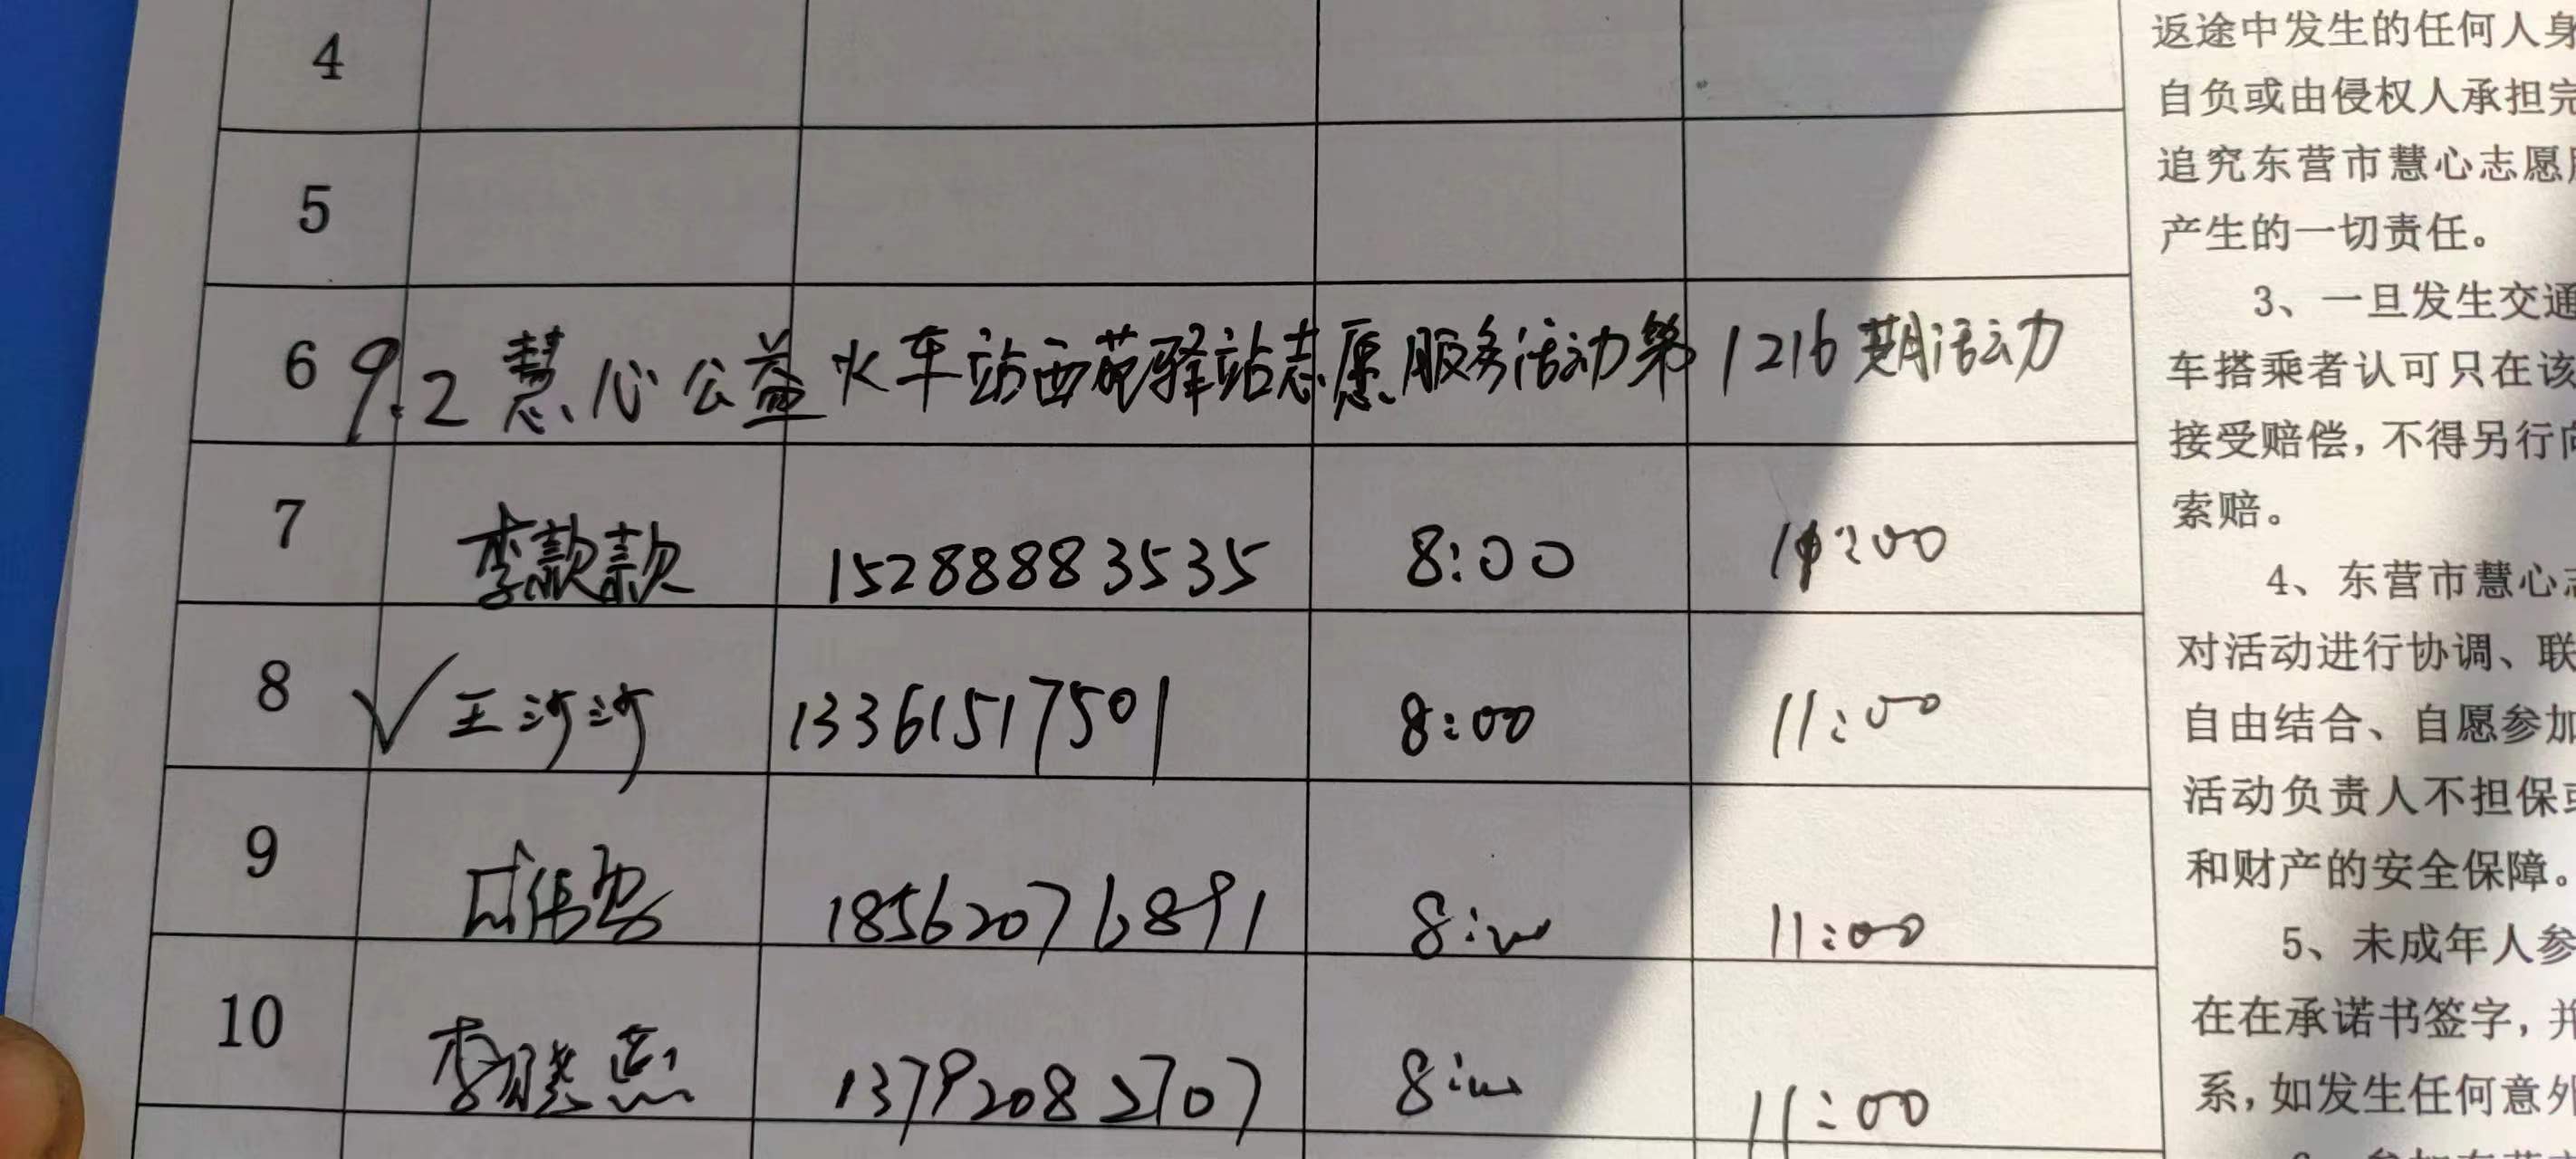 4
5
6 9.2 慧心公益火车站西苑驿站志愿服务活动第1216期活动
7 李款款 15288883535 8:00 11:00
8 ✓ 王沙沙 13361517501 8:00 11:00
9 18562076891 8:00 11:00
10 李胜燕 13792082707 8:00 11:00
返途中发生的任何人身
自负或由侵权人承担完
追究东营市慧心志愿
产生的一切责任。
3、一旦发生交通
车搭乘者认可只在该
接受赔偿，不得另行向
索赔。
4、东营市慧心志
对活动进行协调、联
自由结合、自愿参加
活动负责人不担保或
和财产的安全保障。
5、未成年人参
在在承诺书签字，并
系，如发生任何意外